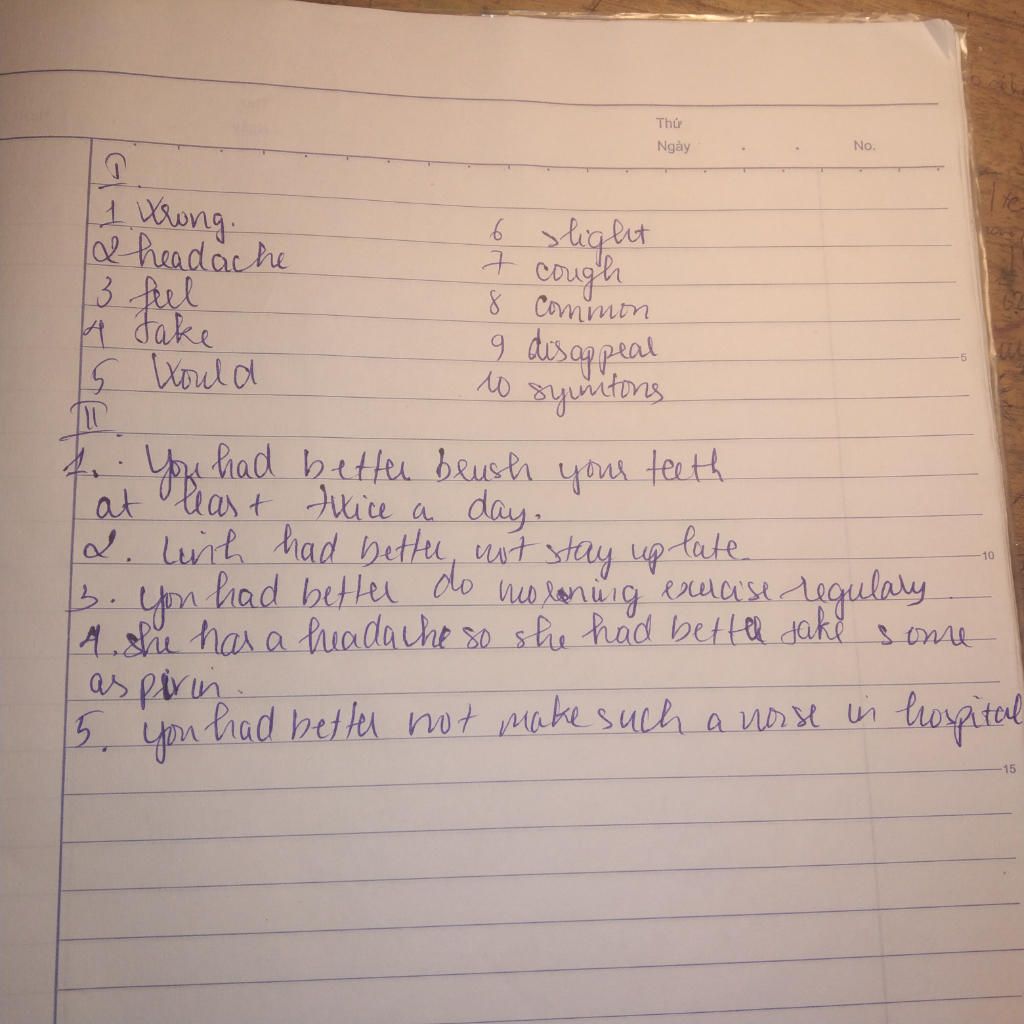 Thứ
Ngày . . No.
I
1 Wrong. 6 slight
2 headache 7 cough
3 feel 8 common
4 take 9 disappeal
5 Would 10 symtons
II
1. You had better brush your teeth
at least twice a day.
2. Linh had better not stay up late.
3. you had better do morning exercise regulary.
4. she has a headache so she had better take some
aspirin.
5. you had better not make such a noise in hospital
5
10
15